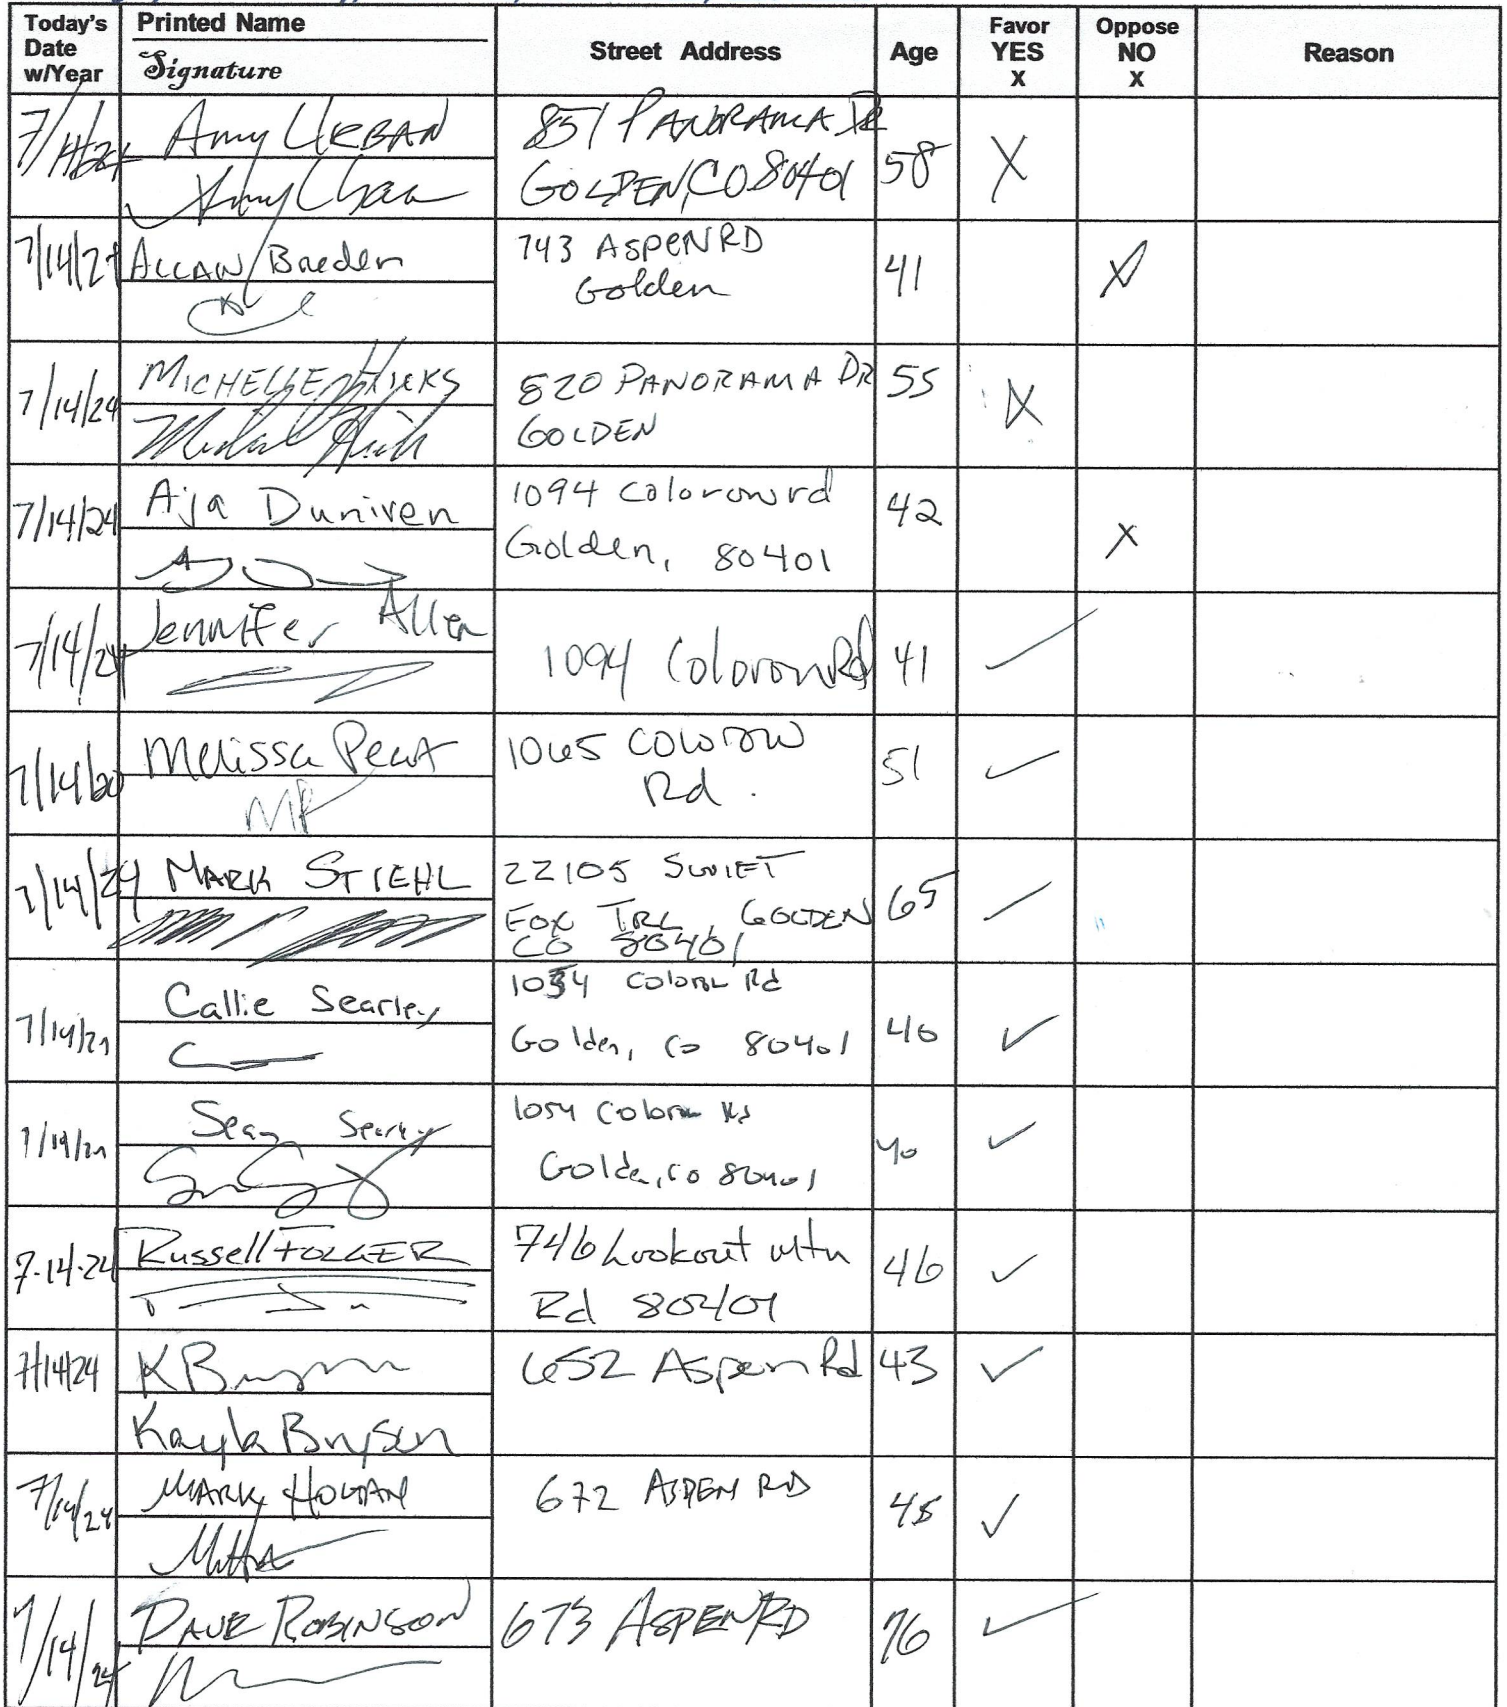 Today's Date w/Year
Printed Name
Signature
Street Address
Age
Favor YES X
Oppose NO X
Reason
Amy URBAN
851 PANORAMA DR
GOLDEN, CO 80401
58
X
7/14/24
ALLAN Breden
743 ASPEN RD
Golden
41
X
7/14/24
MICHELLE HICKS
820 PANORAMA DR
GOLDEN
55
X
7/14/24
Aja Duniven
1094 Colorow rd
Golden, 80401
42
X
7/14/24
Jennifer Allen
1094 Colorow Rd
41
✓
7/14/20
Melissa Peat
MP
1065 Colorow
Rd.
51
✓
7/14/24
MARK STIEHL
22105 SWIFT
FOX TRL, GOLDEN
CO 80401
65
✓
Callie Searley
1054 Colorow Rd
Golden, CO 80401
40
✓
Sean Searley
1054 Colorow Rd
Golden, CO 80401
40
✓
7-14-24
Russell FOLGER
746 Lookout Mtn
Rd 80401
46
✓
7/14/24
Kayla Brysen
652 Aspen Rd
43
✓
7/14/24
MARK HOLTAN
672 ASPEN RD
45
✓
7/14/24
DAVE ROBINSON
673 ASPEN RD
76
✓